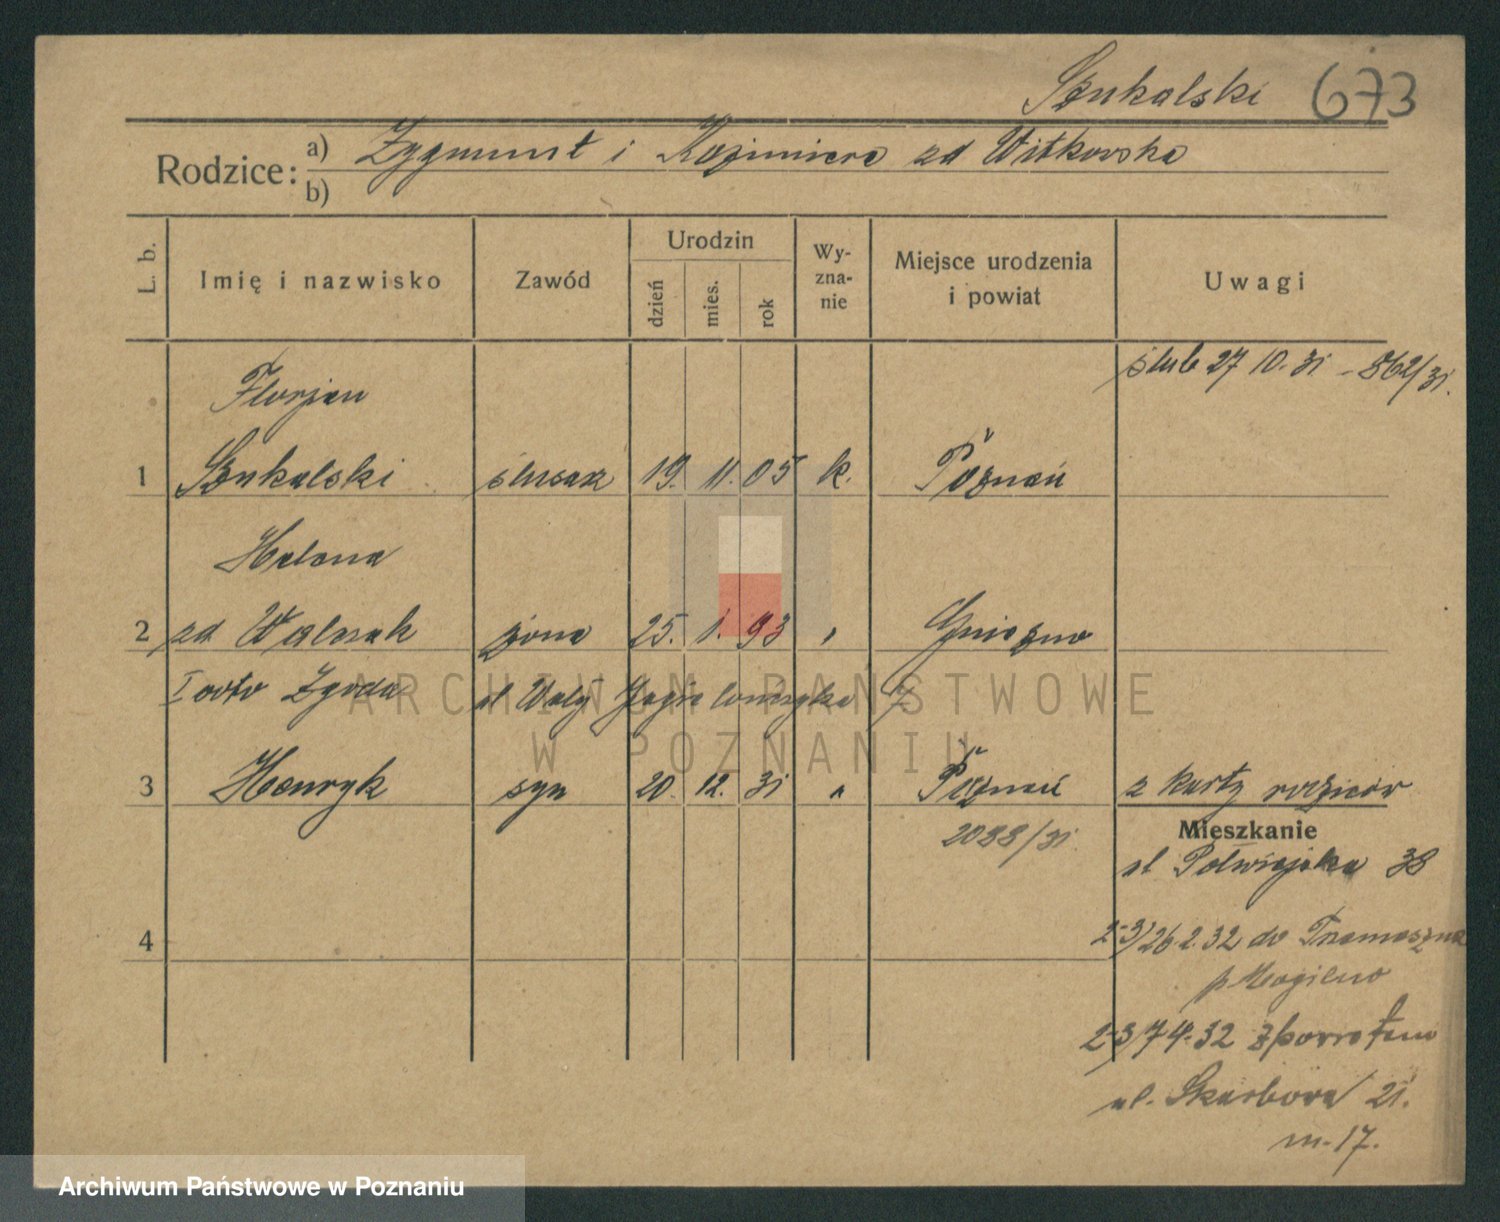 Szukalski 673
Rodzice: a) Zygmunt i Kazimiera zd Witkowska
b)
L. b. Imię i nazwisko Zawód Urodzin dzień mies. rok Wy-zna-nie Miejsce urodzenia i powiat Uwagi
ślub 27 10. 31 - 862/31.
Florjan
1 Szukalski ślusarz 19. 11. 05 k. Poznań
Helena
2 zd Walczak żona 25. 1. 93 " Gniezno
I voto Zgoda ul Wały Jagielończyka 7
3 Henryk syn 20. 12. 31 " Poznań z karty rodziców
2088/31
Mieszkanie
ul Półwiejska 38
4
2-3/26.2.32 do Trzemeszna
p. Mogilno
2-3/7 4.32 z powrotem
ul. Skarbowa 21.
m. 17.
ARCHIWUM PAŃSTWOWE
W POZNANIU
Archiwum Państwowe w Poznaniu